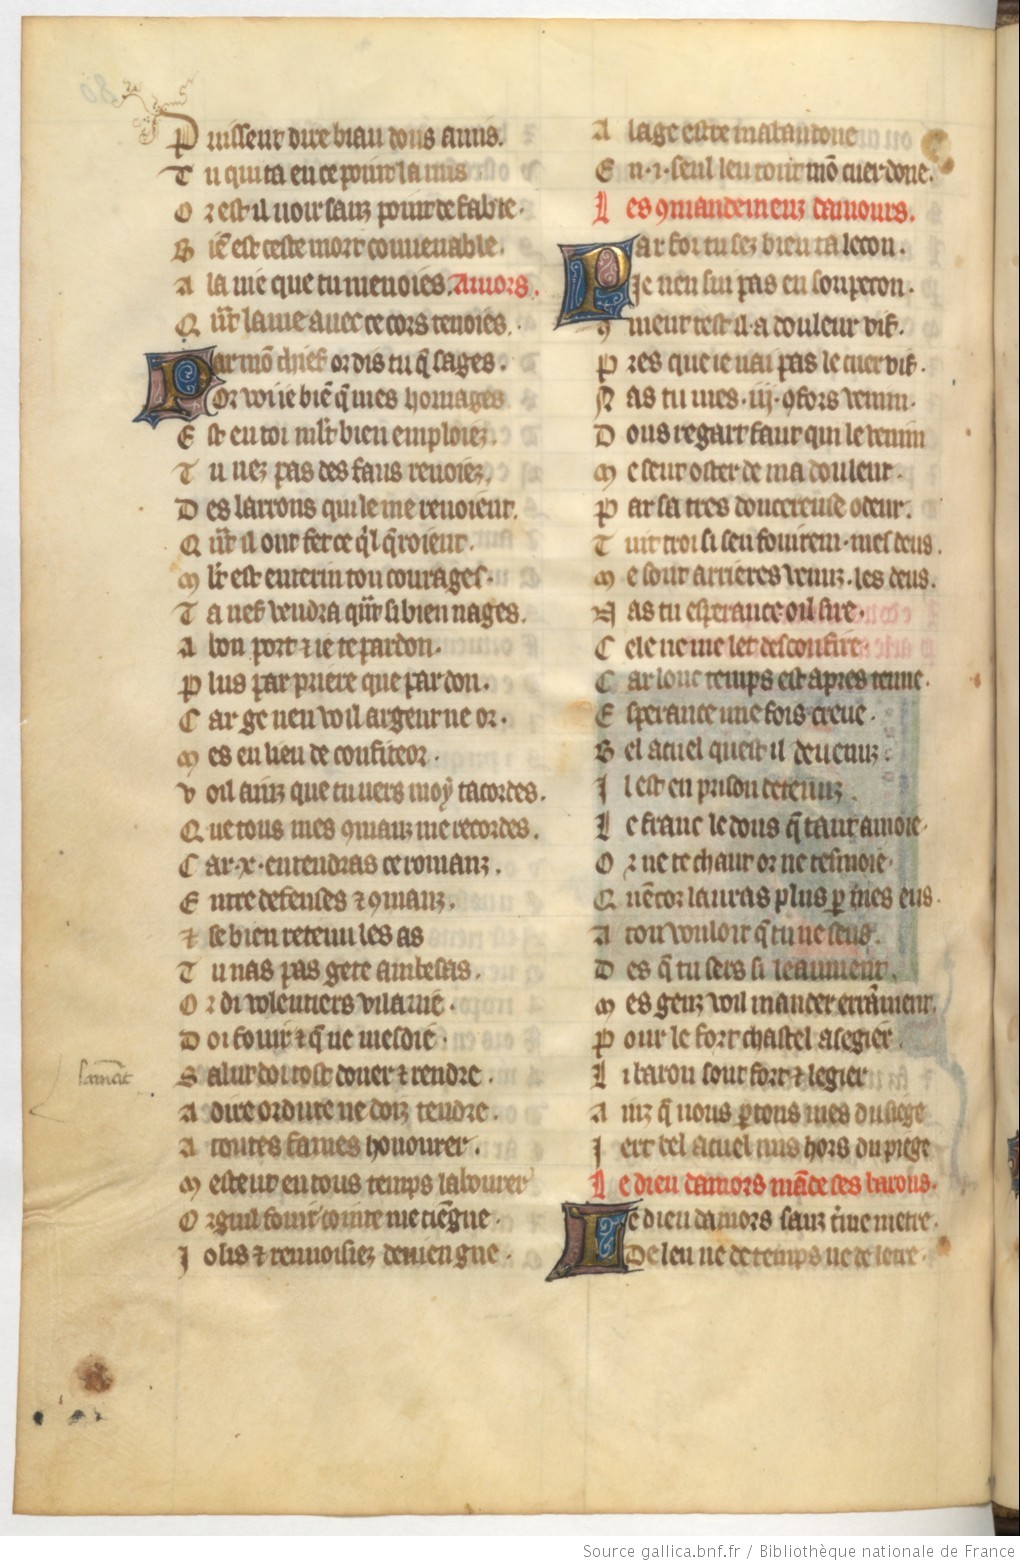 Puissent dire biau dous amis.
Tu qui ta en ce point la mis
Or est il voir sanz point de fable.
Biē est ceste mort couuenable.
A la uie que tu menoies. Amors.
Qn̄t lame auec ce cors tenoies.
Par mō chief or dis tu q̄ sages.
Or voi ie biē q̄ mes homages
Est en toi ml̄t bien emploiez.
Tu nez pas des faus renoiez.
Des larrons qui le me renoient.
Qn̄t il ont fet ce q̄l q̄roient.
Ml̄t est enterin ton courages.
Ta nef vendra qn̄t si bien nages.
A bon port ⁊ ie te pardon.
Plus par priere que par don.
Car ge nen voil argent ne or.
Mes en lieu de confiteor.
Voil ainz que tu uers moy tacordes.
Que tous mes ꝯmanz me recordes.
Car .x. en tendras ce romanz.
Entre defenses ⁊ ꝯmanz.
Et se bien retenu les as
Tu nas pas gete ambesas.
Or di volentiers vilanie.
Doi fouir ⁊ q̄ ne mesdie.
Salut doi tost doner ⁊ rendre.
A dire ordure ne doiz tendre.
A toutes fames honourer.
Mesteut en tous temps labourer
Orguil fouir cointe me tiēgne.
Jolis ⁊ renuoisiez deuiengne.
A large estre mabandone
En .i. seul leu tout mō cuer done.
Les ꝯmandemenz damours.
Par foi tu sez bien ta lecon.
Je nen sui pas en soupecon.
ꝯment test il a douleur vif.
Pres que ie nai pas le cuer vif.
Nas tu mes .iij. ꝯfors venim.
Dous regart faut qui le venim
Me seut oster de ma douleur.
Par sa tres doucereuse odeur.
Tuit troi si sen fouirent. mes deus.
Me sont arrieres venuz. les deus.
Nas tu esperance oil sire.
Cele ne me let desconfire.
Car lonc temps est apres tenue.
Esperance une fois creue.
Bel acuel quest il deuenuz.
Il est en prison detenuz.
Le franc le dous q̄ tant amoie.
Or ne te chaut or ne tesmoie.
Quēcor lauras plus ꝑ mes eus.
A ton vouloir q̄ tu ne seus.
Des q̄ tu sers si leaument.
Mes genz voil mander errāment.
Pour le fort chastel asegier.
Li baron sont fort ⁊ legier
Ainz q̄ nous ꝑtons mes du siege
Iert bel acuel mis hors du piege
Le dieu damors māde ses barons.
Le dieu damors sanz t̄me metre.
De leu ne de temps ne de letre.